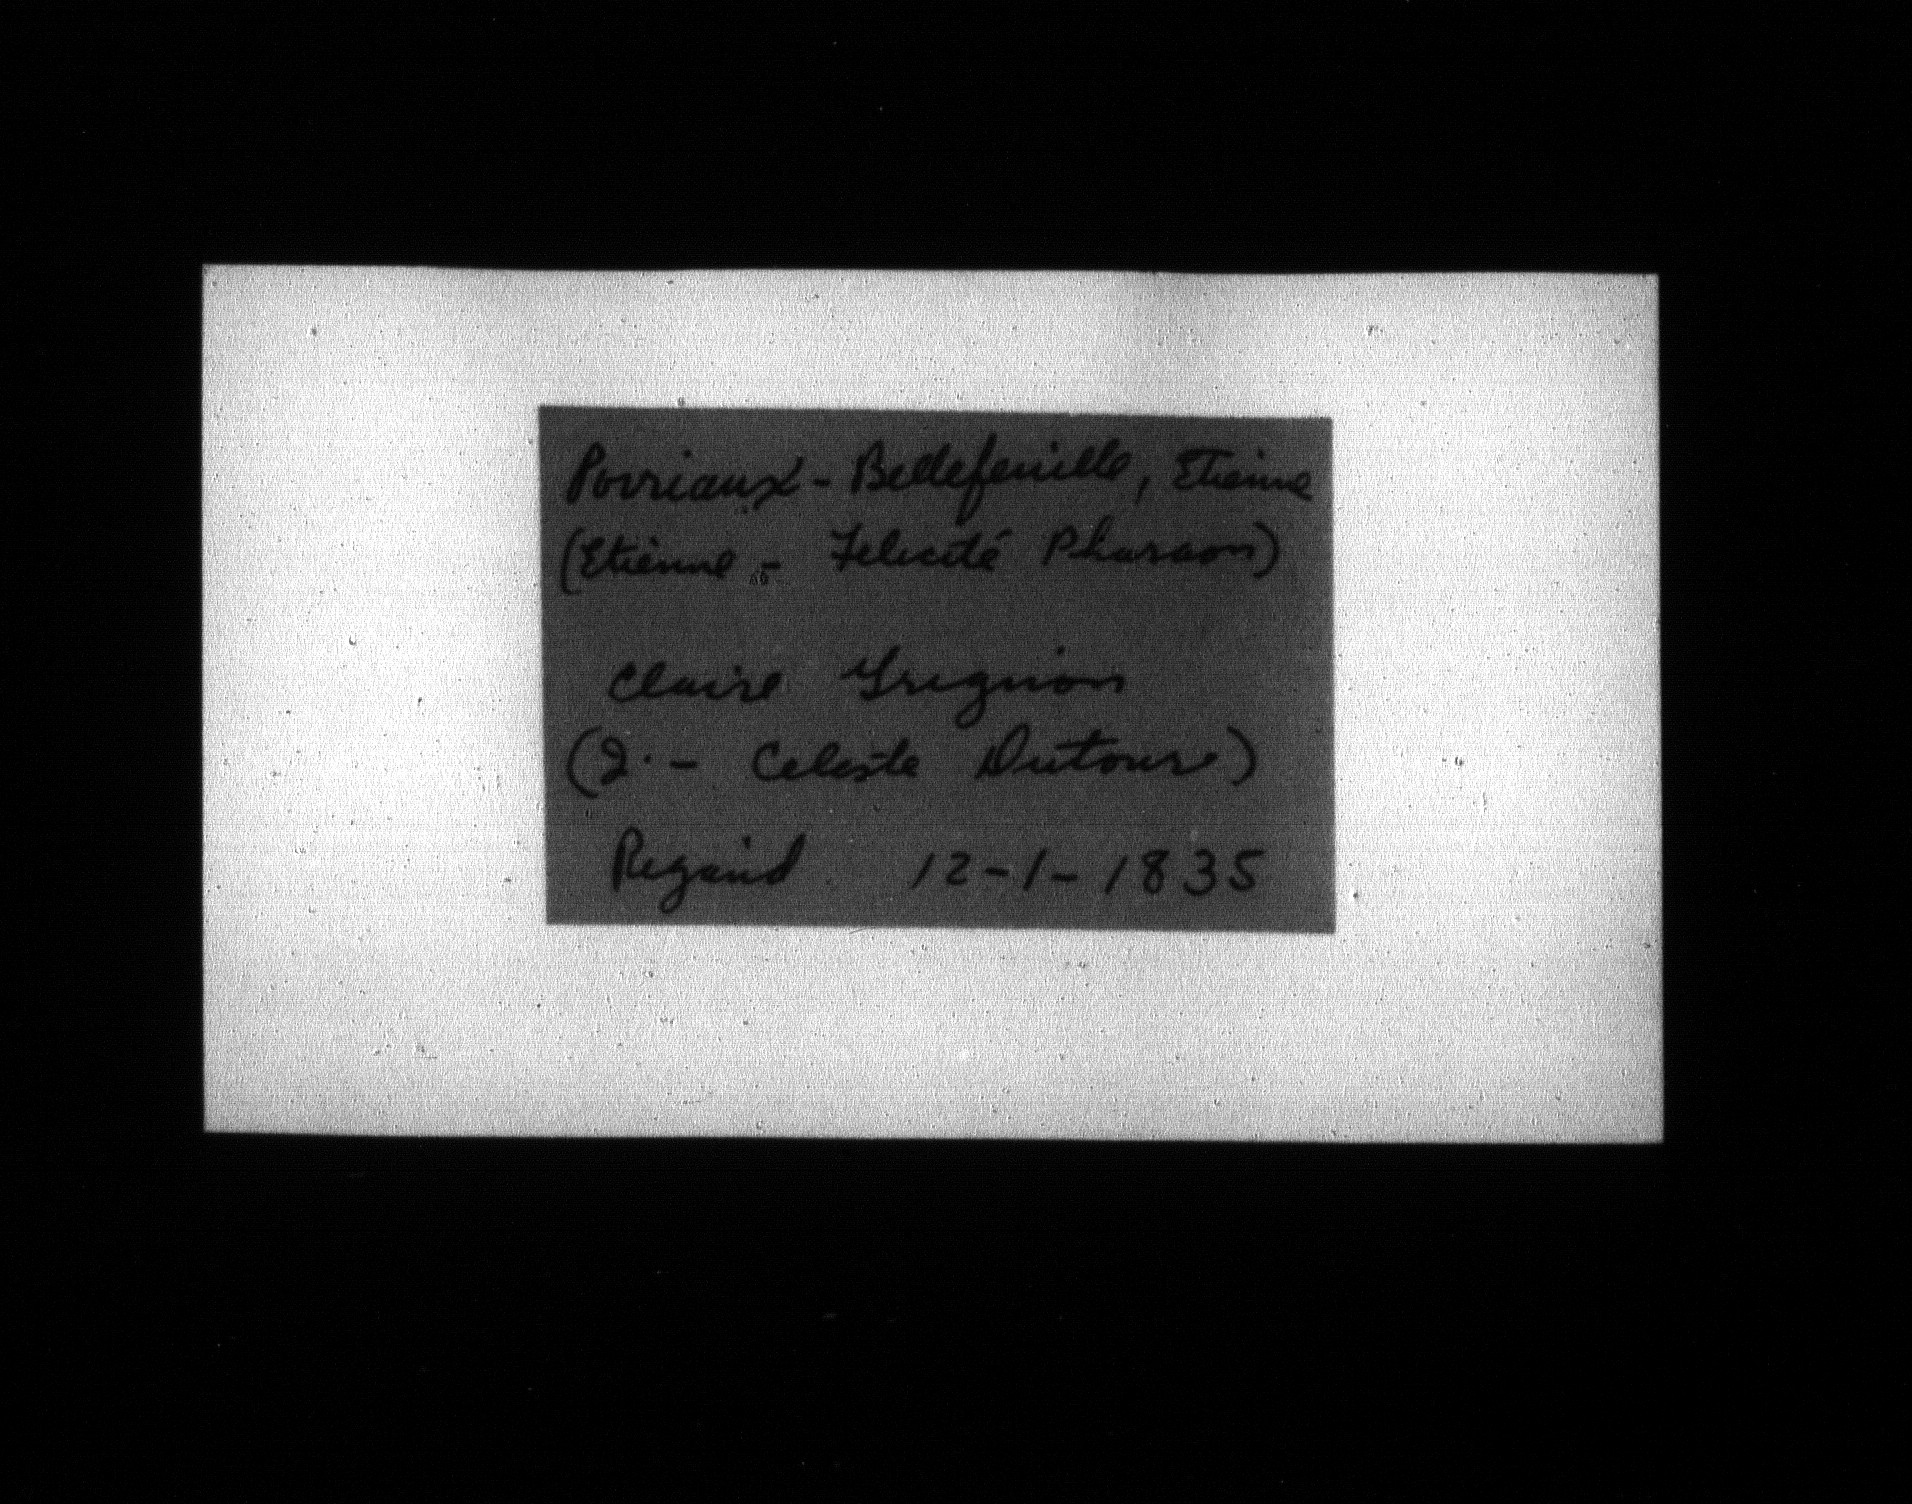 Poiriaux - Bellefeuille, Etienne
(Etienne - Felicité Pharaon)
Claire Grignon
(J. - Celeste Dutour)
Rigaud 12-1-1835